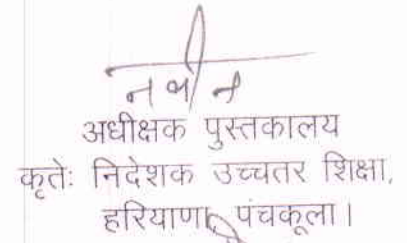 नवीन
अधीक्षक पुस्तकालय
कृतेः निदेशक उच्चतर शिक्षा,
हरियाणा, पंचकूला।